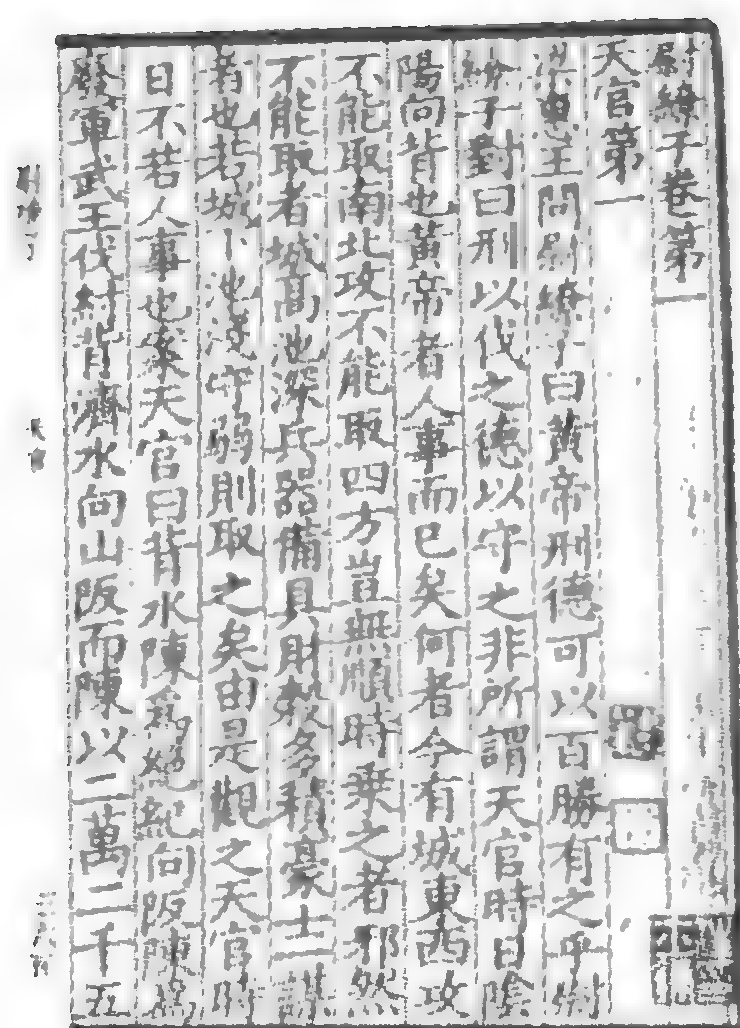 尉繚子卷第一
天官第一
梁惠王問尉繚子曰黄帝刑德可以百勝有之乎尉
繚子對曰刑以伐之德以守之非所謂天官時日陰
陽向背也黄帝者人事而已矣何者今有城東西攻
不能取南北攻不能取四方豈無順時乗之者邪然
不能取者城高池深兵器備具財穀多積豪士一謀
者也若城下池淺守弱則取之矣由是觀之天官時
日不若人事也案天官曰背水陳爲絶紀向阪陳爲
廢軍武王伐紂背濟水向山阪而陳以二萬二千五